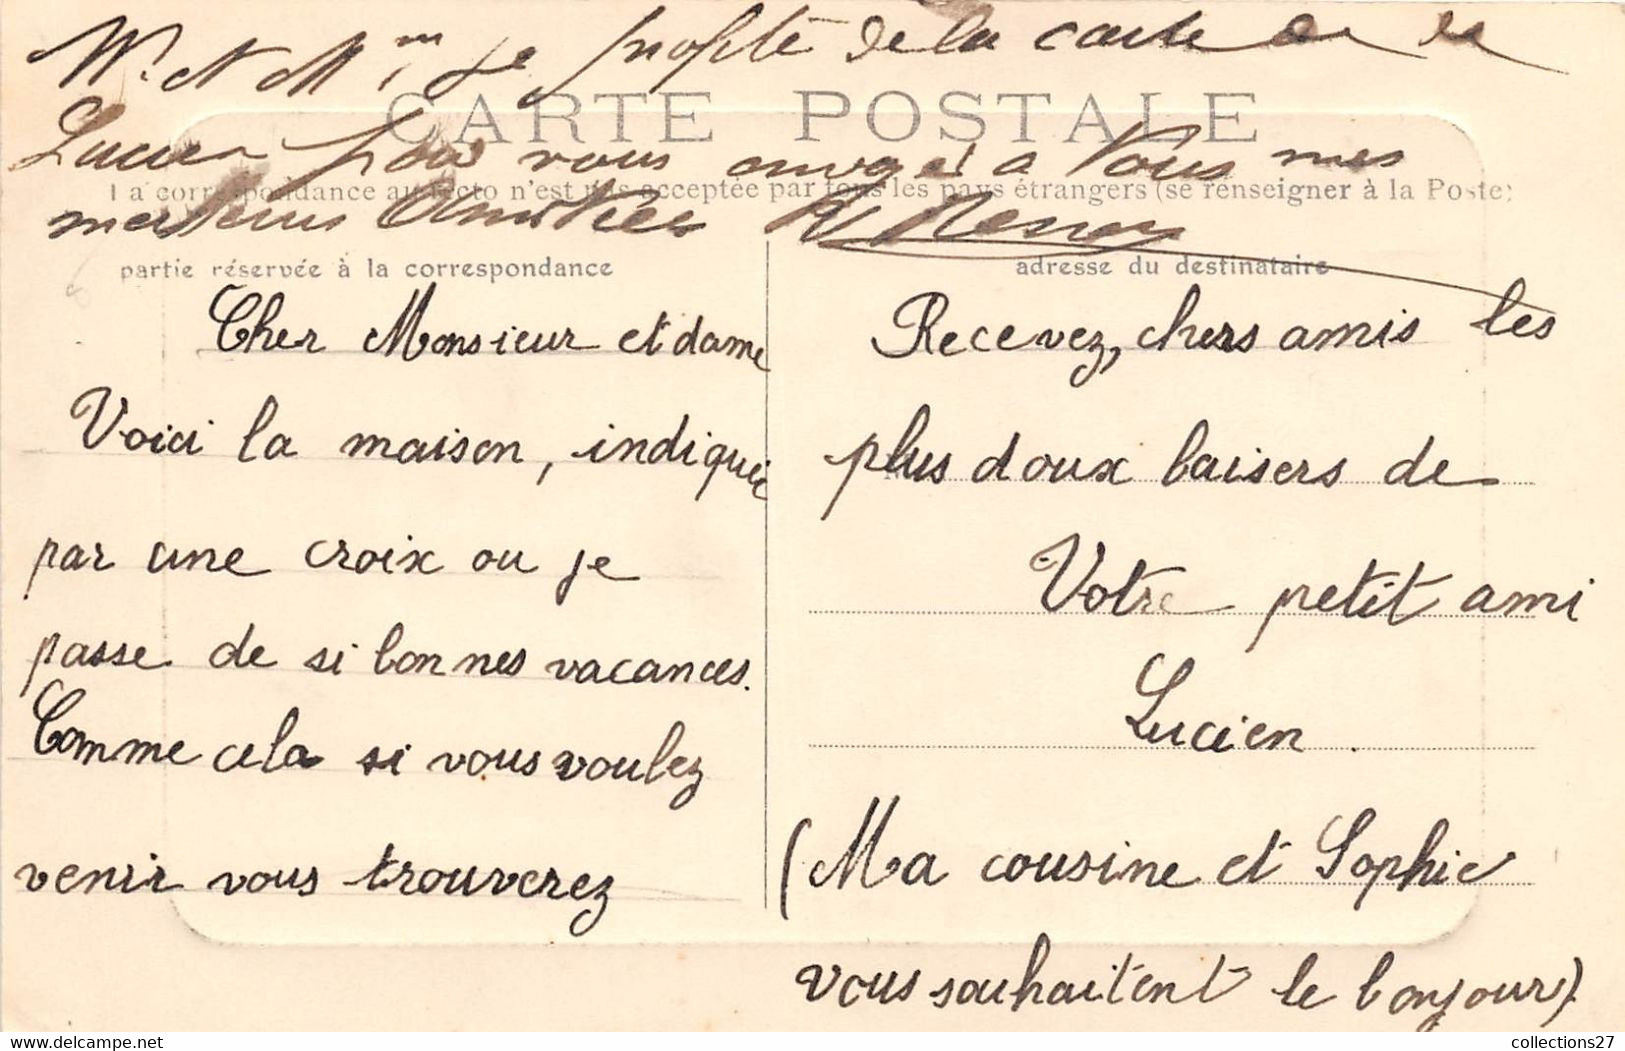 je profite de la carte de
CARTE POSTALE
Lucien pour vous envoyer a Vous mes
La correspondance au recto n'est pas acceptée par tous les pays étrangers (se renseigner à la Poste)
meilleurs Amitiées
partie réservée à la correspondance
adresse du destinataire
Cher Monsieur et dame
Voici la maison, indiquée
par une croix ou je
passe de si bonnes vacances.
Comme cela si vous voulez
venir vous trouverez
Recevez, chers amis les
plus doux baisers de
Votre petit ami
Lucien.
(Ma cousine et Sophie
vous souhaitent le bonjour).
collections27